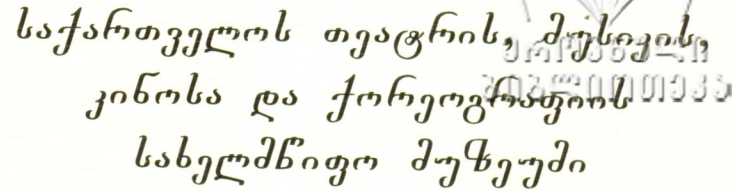 საქართველოს თეატრის, მუსიკის,
კინოსა და ქორეოგრაფიის
სახელმწიფო მუზეუმი
ეროვნული
ბიბლიოთეკა